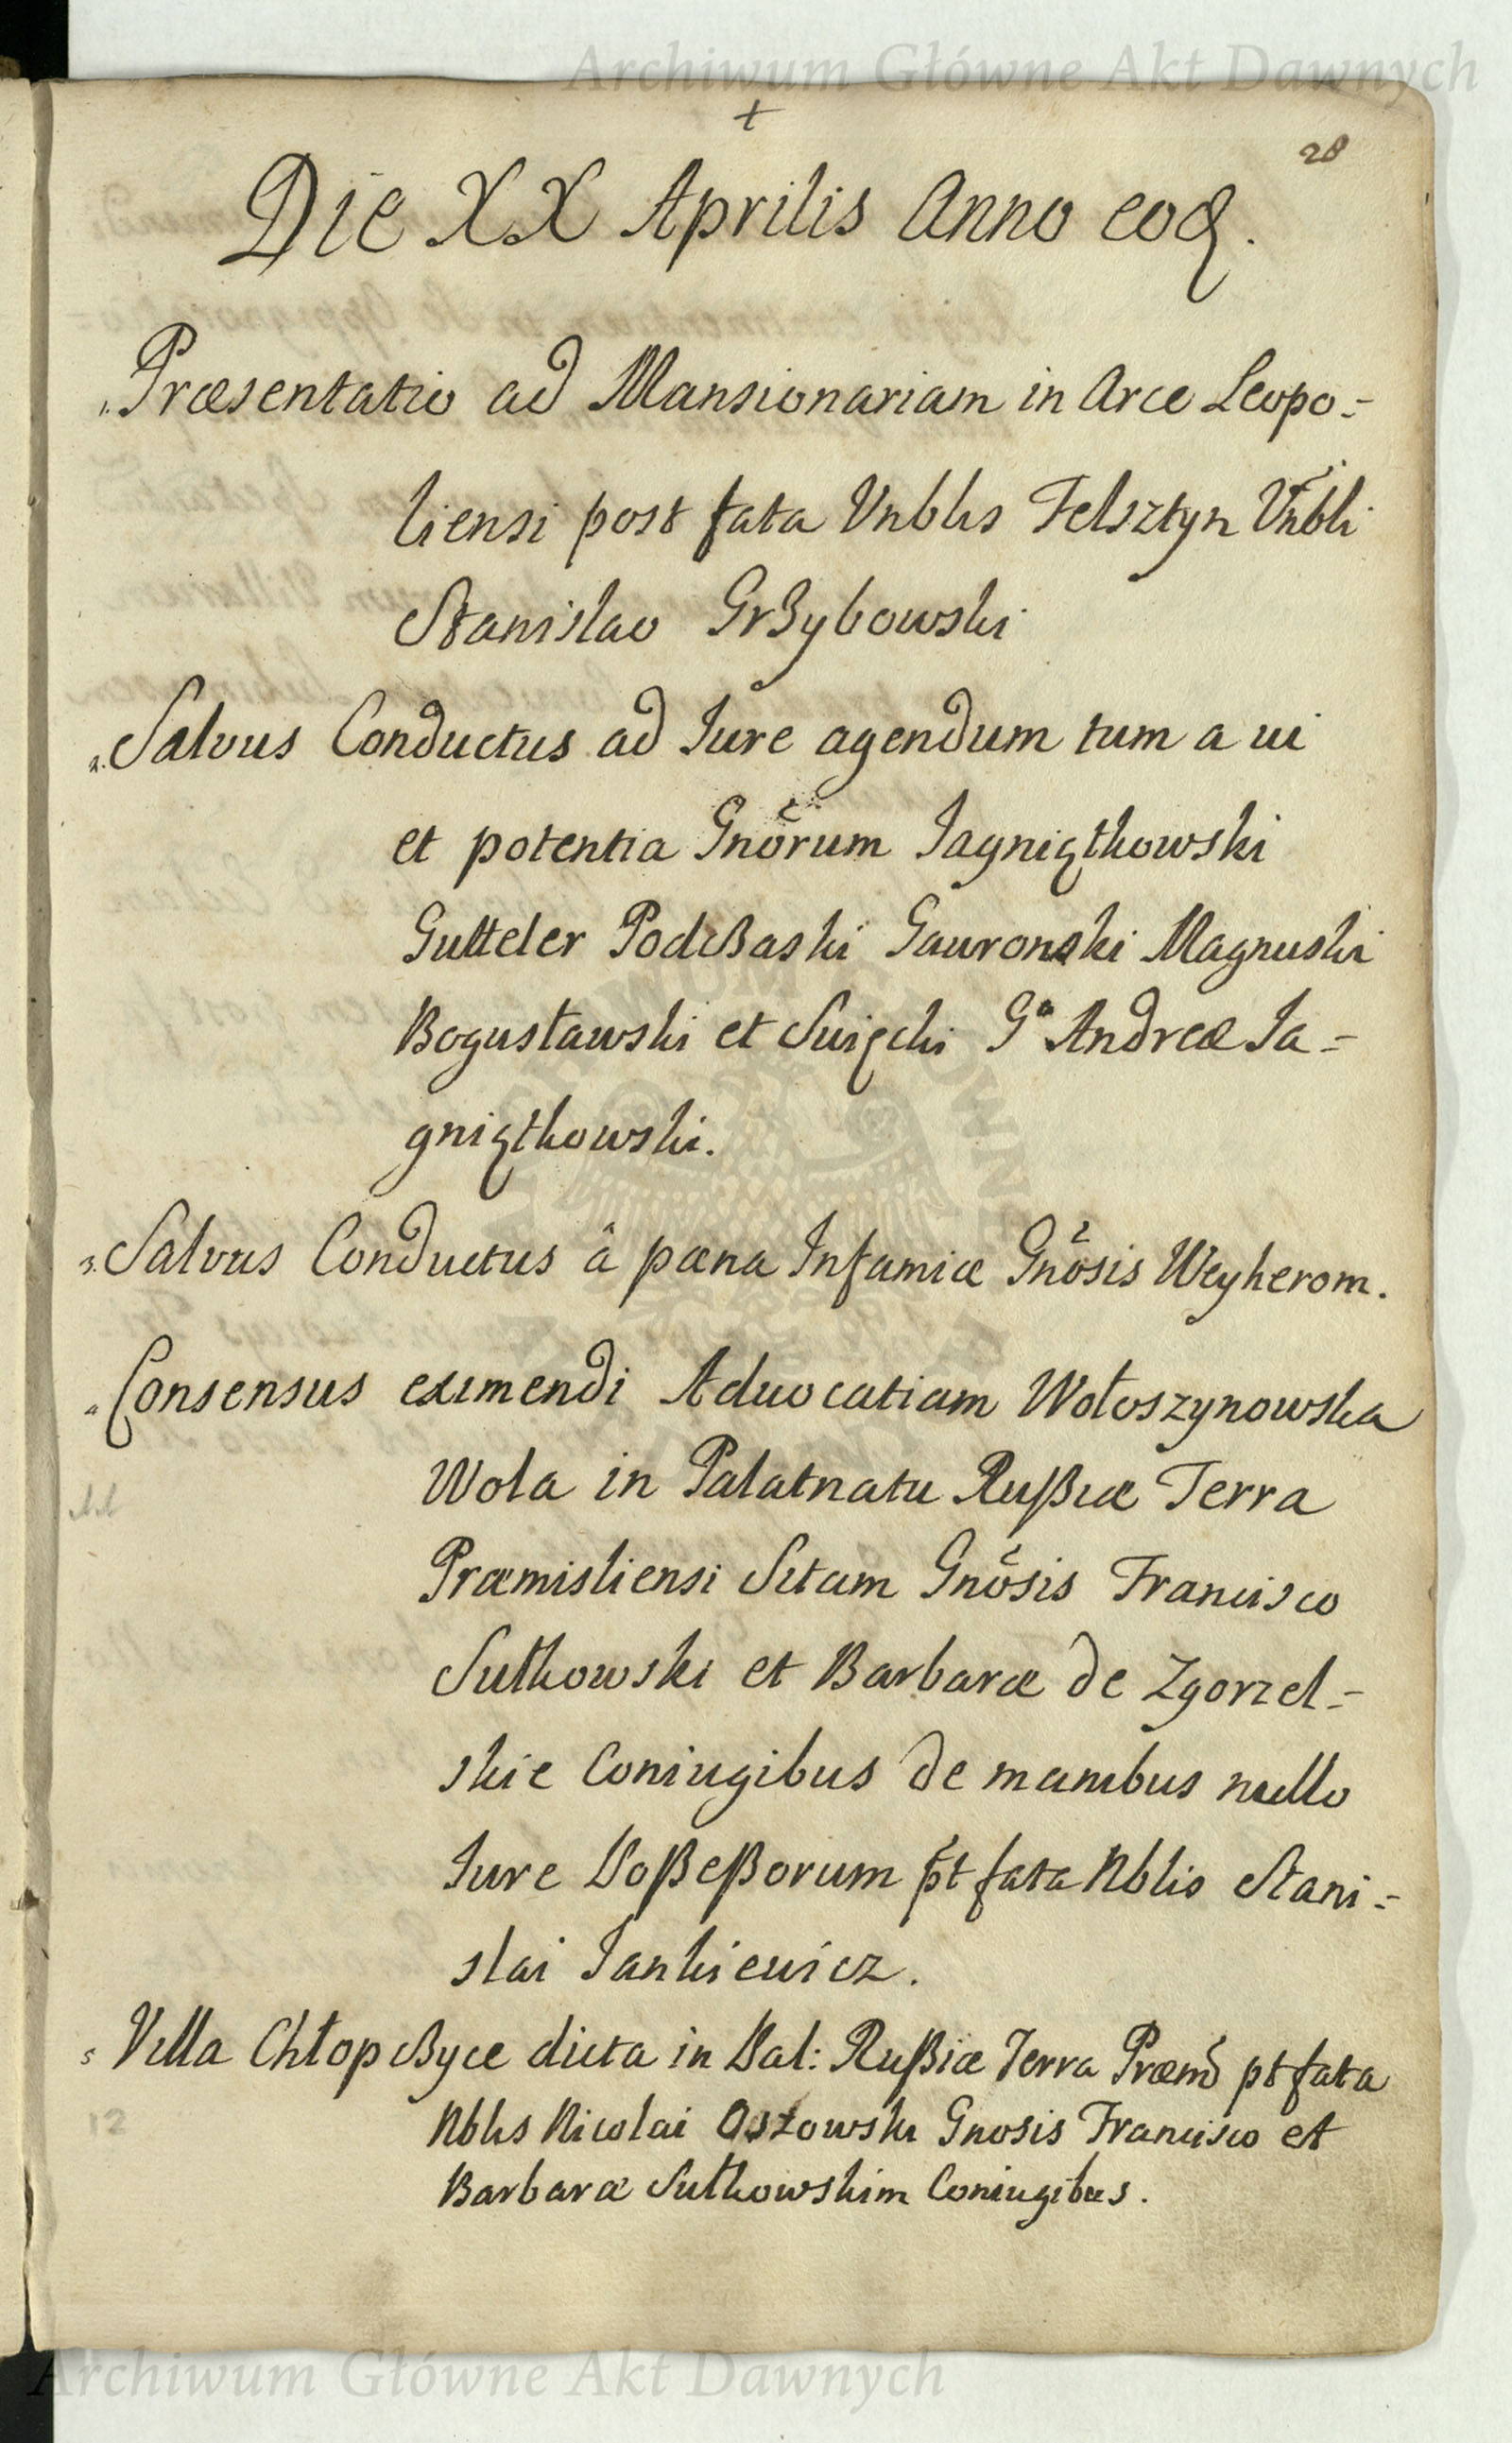 Archiwum Główne Akt Dawnych
+
28
Die XX Aprilis Anno eoq.
1. Præsentatio ad Mansionariam in Arce Leopo=
liensi post fata Vnblis Felsztyn Vnbli
Stanislao Grzybowski
2. Salvus Conductus ad Iure agendum tum a ui
et potentia Gnõrum Iagniątkowski
Gutteler Podczaski Gauronski Magnuski
Bogusławski et Suięcki G° Andreæ Ia=
gniątkowski.
3. Salvus Conductus â pæna Infamiæ Gnõsis Weyherom.
4. Consensus eximendi Aduocatiam Wołoszynowska
Wola in Palatnatu Rußiæ Terra
Præmisliensi Sitam Gnõsis Francisco
Sułkowski et Barbaræ de Zgorzel=
skie Coniugibus de manibus nullo
Iure Poßeßorum pt fata Nblis Stani=
slai Iankiewicz.
5 Villa Chłopczyce dicta in Pal: Rußiæ Terra Præm pt fata
12
Nblis Nicolai Ostowski Gnosis Francisco et
Barbaræ Sułkowskim Coniugibus.
Archiwum Główne Akt Dawnych